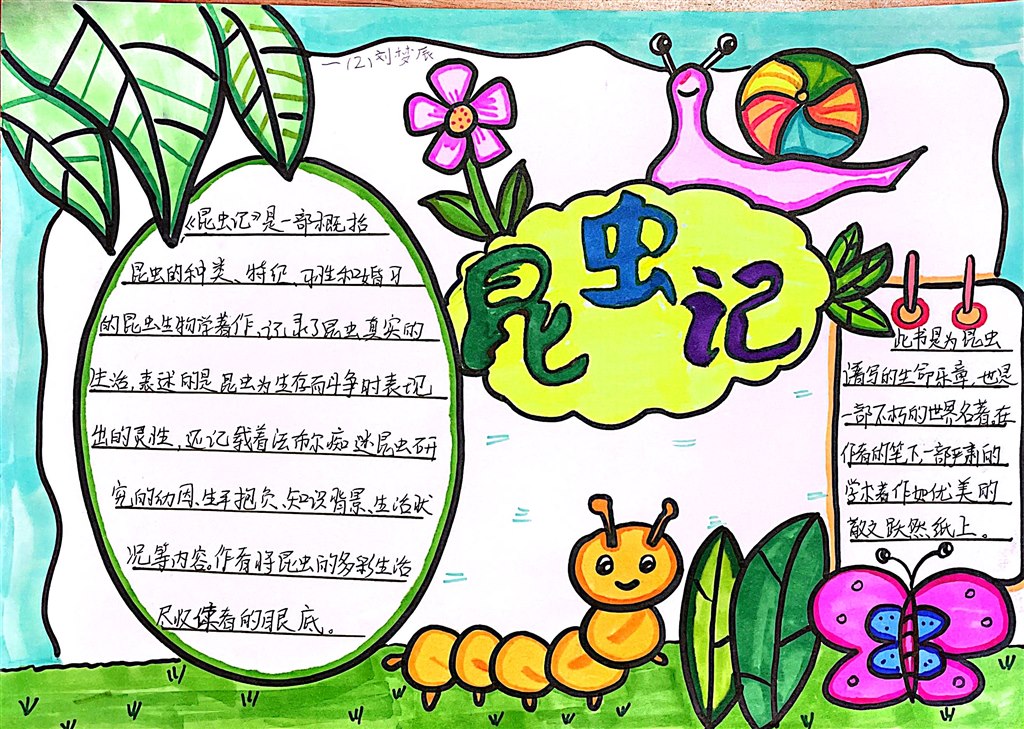 一(2)刘梦辰
昆虫记
《昆虫记》是一部概括
昆虫的种类、特征、习性和婚习
的昆虫生物学著作,记录了昆虫真实的
生活,表述的是昆虫为生存而斗争时表现
出的灵性,还记载着法布尔痴迷昆虫研
究的动因、生平抱负、知识背景、生活状
况等内容。作者将昆虫的多彩生活
尽收读者的眼底。
此书是为昆虫
谱写的生命乐章,也是
一部不朽的世界名著,在
作者的笔下,一部严肃的
学术著作如优美的
散文跃然纸上。